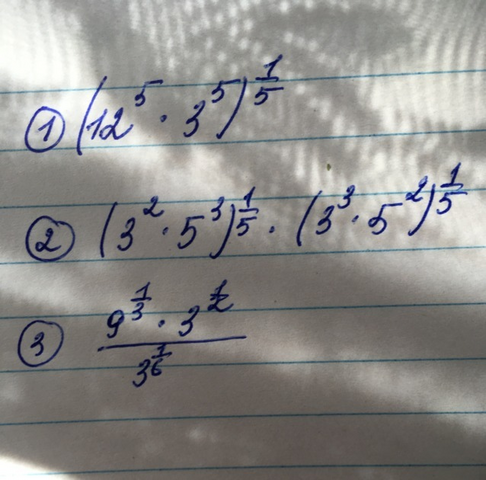 ① (12^5 · 3^5)^(1/5)
② (3^2 · 5^3)^(1/5) · (3^3 · 5^2)^(1/5)
③ (9^(1/3) · 3^(1/2)) / 3^(1/6)